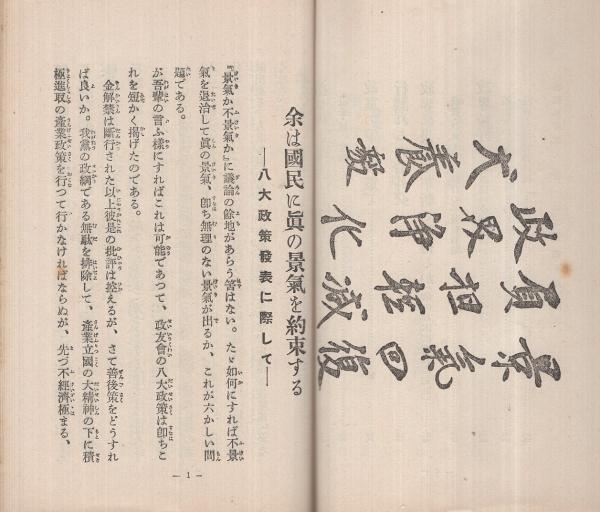 景氣回復
負担輕減
政界淨化
犬養毅
余は國民に眞の景氣を約束する
―八大政策發表に際して―
『景氣か不景氣か』に議論の餘地があらう筈はない。たゞ如何にすれば不景
氣を退治して眞の景氣、卽ち無理のない景氣が出るか、これが六かしい問
題である。
が吾輩の言ふ樣にすればこれは可能であつて、政友會の八大政策は卽ちこ
れを短かく揭げたのである。
金解禁は斷行された以上彼是の批評は控えるが、さて善後策をどうすれ
ば良いか。我黨の政綱である無駄を排除して、產業立國の大精神の下に積
極進取の產業政策を行つて行かなければならぬが、先づ不經濟極まる、
― 1 ―